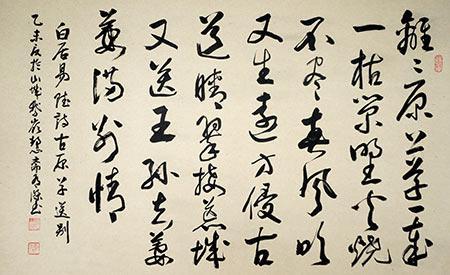 離々原上草一歲
一枯榮野火燒
不盡春風吹
又生遠方侵古
道晴翠接荒城
又送王孫去萋
萋滿別情
白居易詩古原草送別
乙未夏於山城書